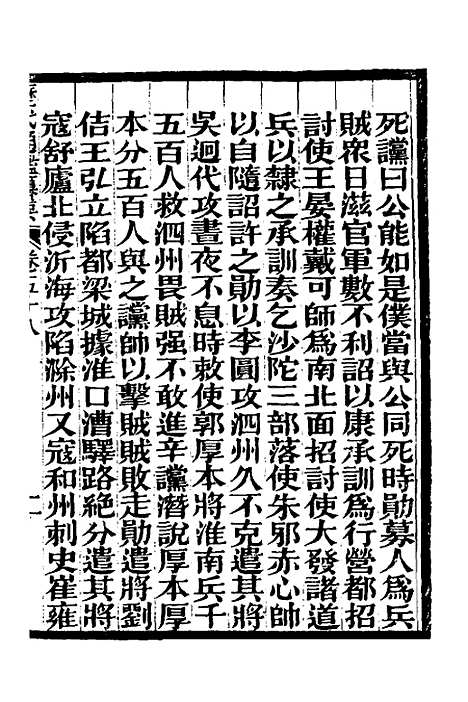 死讜曰公能如是僕當與公同死時勛募人爲兵
賊衆日滋官軍數不利詔以康承訓爲行營都招
討使王晏權戴可師爲南北面招討使大發諸道
兵以隸之承訓奏乞沙陀三部落使朱邪赤心帥
以自隨詔許之勛以李圓攻泗州久不克遣其將
吳迥代攻晝夜不息時敕使郭厚本將淮南兵千
五百人救泗州畏賊强不敢進辛讜潛說厚本厚
本分五百人與之讜師以擊賊賊敗走勛遣將劉
佶王弘立陷都梁城據淮口漕驛路絕分遣其將
寇舒廬北侵沂海攻陷滁州又寇和州刺史崔雍
卷五十八